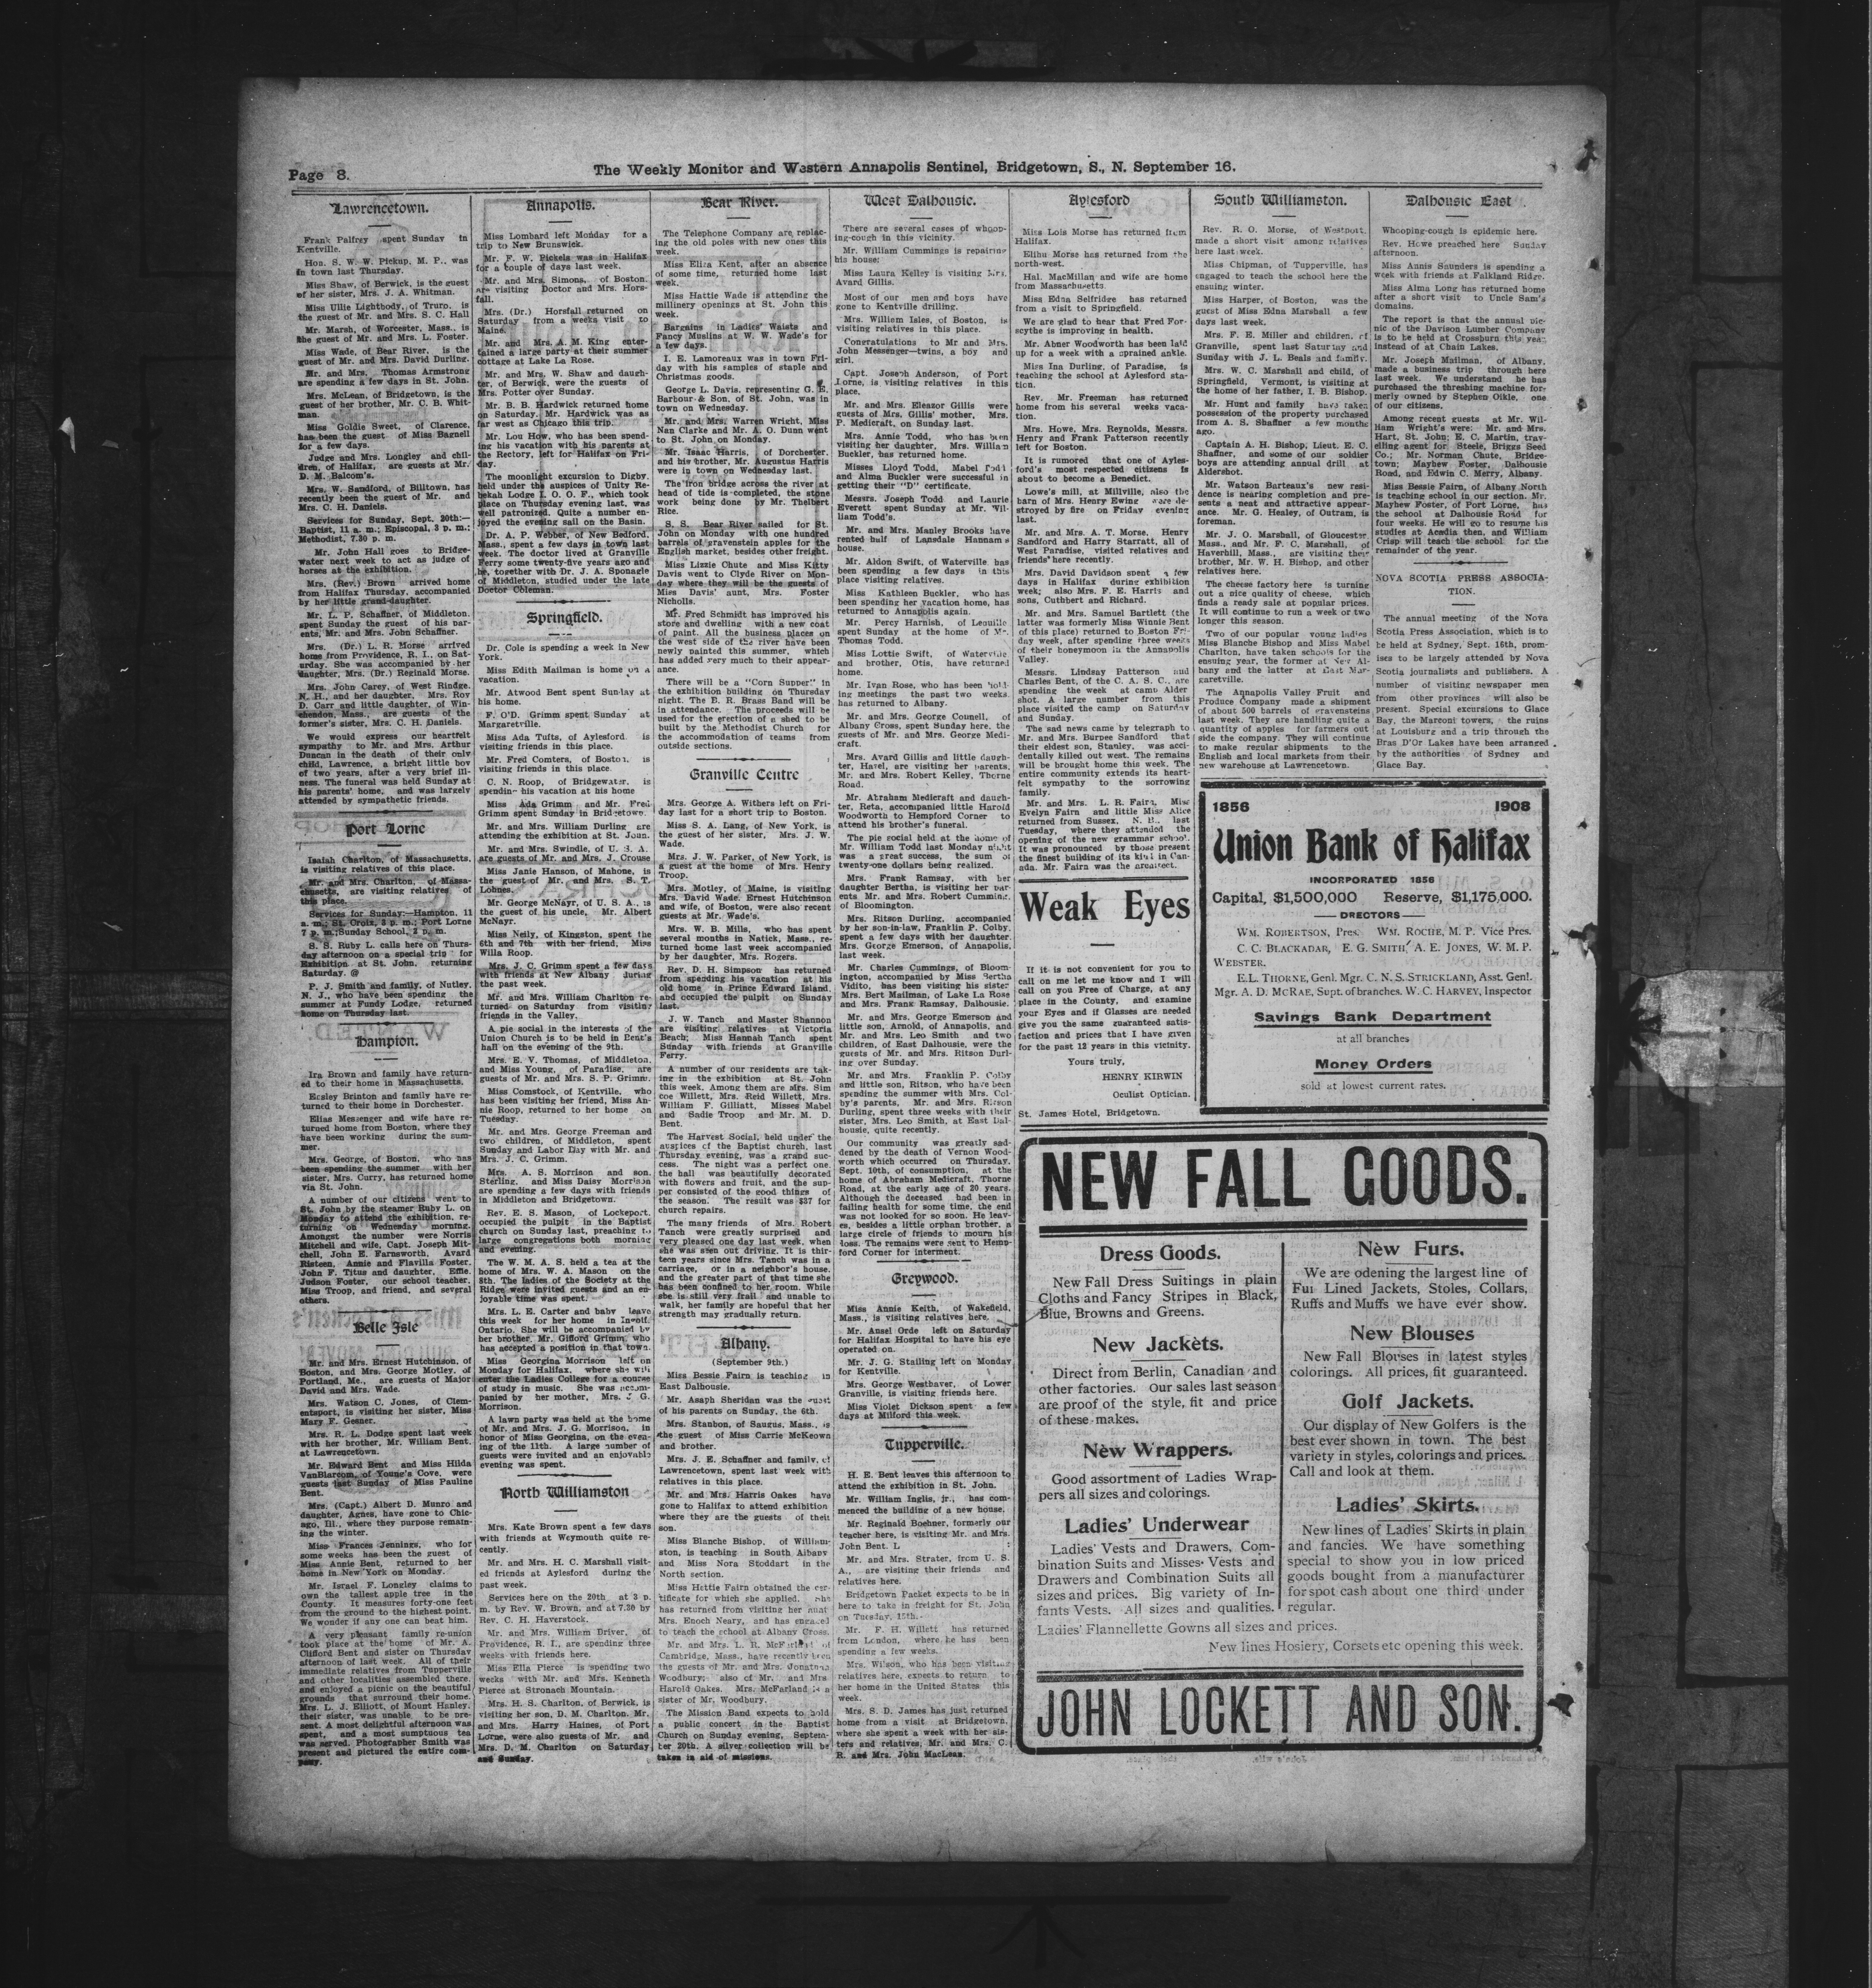 Page 8.
The Weekly Monitor and Western Annapolis Sentinel, Bridgetown, S., N. September 16.
Lawrencetown.
Frank Palfrey spent Sunday in
Kentville.
Hon. S. W. W. Pickup, M. P., was
in town last Thursday.
Miss Shaw, of Berwick, is the guest
of her sister, Mrs. J. A. Whitman.
Miss Ullie Lightbody, of Truro, is
the guest of Mr. and Mrs. S. C. Hall
Mr. Marsh, of Worcester, Mass., is
the guest of Mr. and Mrs. L. Foster.
Miss Wade, of Bear River, is the
guest of Mr. and Mrs. David Durling.
Mr. and Mrs. Thomas Armstrong
are spending a few days in St. John.
Mrs. McLean, of Bridgetown, is the
guest of her brother, Mr. C. B. Whit-
man.
Miss Goldie Sweet, of Clarence,
has been the guest of Miss Barnell
for a few days.
Judge and Mrs. Longley and chil-
dren, of Halifax, are guests at Mr.
D. M. Balcom's.
Mrs. W. Sandford, of Billtown, has
recently been the guest of Mr. and
Mrs. C. H. Daniels.
Services for Sunday, Sept. 20th:—
Baptist, 11 a. m.; Episcopal, 3 p. m.;
Methodist, 7.30 p. m.
Mr. John Hall goes to Bridge-
water next week to act as judge of
horses at the exhibition.
Mrs. (Rev.) Brown arrived home
from Halifax Thursday, accompanied
by her little grand-daughter.
Mr. L. P. Schaffner, of Middleton,
spent Sunday the guest of his par-
ents, Mr. and Mrs. John Schaffner.
Mrs. (Dr.) L. R. Morse arrived
home from Providence, R. I., on Sat-
urday. She was accompanied by her
daughter, Mrs. (Dr.) Reginald Morse.
Mrs. John Carey, of West Rindge,
N. H., and her daughter, Mrs. Roy
D. Carr and little daughter, of Win-
chendon, Mass., are guests of the
former's sister, Mrs. C. H. Daniels.
We would express our heartfelt
sympathy to Mr. and Mrs. Arthur
Duncan in the death of their only
child, Lawrence, a bright little boy
of two years, after a very brief ill-
ness. The funeral was held Sunday at
his parents' home, and was largely
attended by sympathetic friends.
Port Lorne
Isaiah Charlton, of Massachusetts,
is visiting relatives of this place.
Mr. and Mrs. Charlton, of Massa-
chusetts, are visiting relatives of
this place.
Services for Sunday:—Hampton, 11
a. m.; St. Croix, 3 p. m.; Port Lorne
7 p. m.;Sunday School, 2 p. m.
S. S. Ruby L. calls here on Thurs-
day afternoon on a special trip for
Exhibition at St. John, returning
Saturday. @
P. J. Smith and family, of Nutley,
N. J., who have been spending the
summer at Fundy Lodge, returned
home on Thursday last.
Hampton.
Ira Brown and family have return-
ed to their home in Massachusetts.
Ecsley Brinton and family have re-
turned to their home in Dorchester.
Elias Messenger and wife have re-
turned home from Boston, where they
have been working during the sum-
mer.
Mrs. George, of Boston, who has
been spending the summer with her
sister, Mrs. Curry, has returned home
via St. John.
A number of our citizens went to
St. John by the steamer Ruby L. on
Monday to attend the exhibition, re-
turning on Wednesday morning.
Amongst the number were Norris
Mitchell and wife, Capt. Joseph Mit-
chell, John E. Farnsworth, Avard
Risteen, Annie and Flavilla Foster,
John F. Titus and daughter, Effie,
Judson Foster, our school teacher,
Miss Troop, and friend, and several
others.
Belle Isle
Mr. and Mrs. Ernest Hutchinson, of
Boston, and Mrs. George Motley, of
Portland, Me., are guests of Major
David and Mrs. Wade.
Mrs. Watson C. Jones, of Clem-
entsport, is visiting her sister, Miss
Mary F. Gesner.
Mrs. R. L. Dodge spent last week
with her brother, Mr. William Bent,
at Lawrencetown.
Mr. Edward Bent and Miss Hilda
VanBlarcom, of Young's Cove, were
guests last Sunday of Miss Pauline
Bent.
Mrs. (Capt.) Albert D. Munro and
daughter, Agnes, have gone to Chic-
ago, Ill., where they purpose remain-
ing the winter.
Miss Frances Jennings, who for
some weeks has been the guest of
Miss Annie Bent, returned to her
home in New York on Monday.
Mr. Israel F. Longley claims to
own the tallest apple tree in the
County. It measures forty-one feet
from the ground to the highest point.
We wonder if any one can beat him.
A very pleasant family re-union
took place at the home of Mr. A.
Clifford Bent and sister on Thursday
afternoon of last week. All of their
immediate relatives from Tupperville
and other localities assembled there,
and enjoyed a picnic on the beautiful
grounds that surround their home.
Mrs. L. J. Elliott, of Mount Hanley,
their sister, was unable to be pre-
sent. A most delightful afternoon was
spent, and a most sumptuous tea
was served. Photographer Smith was
present and pictured the entire com-
pany.
Annapolis.
Miss Lombard left Monday for a
trip to New Brunswick.
Mr. F. W. Pickels was in Halifax
for a couple of days last week.
Mr. and Mrs. Simons, of Boston,
are visiting Doctor and Mrs. Hors-
fall.
Mrs. (Dr.) Horsfall returned on
Saturday from a weeks visit to
Maine.
Mr. and Mrs. A. M. King enter-
tained a large party at their summer
cottage at Lake La Rose.
Mr. and Mrs. W. Shaw and daugh-
ter, of Berwick, were the guests of
Mrs. Potter over Sunday.
Mr. B. B. Hardwick returned home
on Saturday. Mr. Hardwick was as
far west as Chicago this trip.
Mr. Lou How, who has been spend-
ing his vacation with his parents at
the Rectory, left for Halifax on Fri-
day.
The moonlight excursion to Digby,
held under the auspices of Unity Re-
bekah Lodge I. O. O. F., which took
place on Thursday evening last, was
well patronized. Quite a number en-
joyed the evening sail on the Basin.
Dr. A. P. Webber, of New Bedford,
Mass., spent a few days in town last
week. The doctor lived at Granville
Ferry some twenty-five years ago and
he, together with Dr. J. A. Sponagle
of Middleton, studied under the late
Doctor Coleman.
Springfield.
Dr. Cole is spending a week in New
York.
Miss Edith Mailman is home on a
vacation.
Mr. Atwood Bent spent Sunday at
his home.
F. O'D. Grimm spent Sunday at
Margaretville.
Miss Ada Tufts, of Aylesford, is
visiting friends in this place.
Mr. Fred Comters, of Boston, is
visiting friends in this place.
C. N. Roop, of Bridgewater, is
spendin- his vacation at his home
Miss Ada Grimm and Mr. Fred
Grimm spent Sunday in Bridgetown.
Mr. and Mrs. William Durling are
attending the exhibition at St. John.
Mr. and Mrs. Swindle, of U. S. A.
are guests of Mr. and Mrs. J. Crouse
Miss Janie Hanson, of Mahone, is
the guest of Mr. and Mrs. S. T.
Lohnes.
Mr. George McNayr, of U. S. A., is
the guest of his uncle, Mr. Albert
McNayr.
Miss Neily, of Kingston, spent the
6th and 7th with her friend, Miss
Willa Roop.
Mrs. J. C. Grimm spent a few days
with friends at New Albany during
the past week.
Mr. and Mrs. William Charlton re-
turned on Saturday from visiting
friends in the Valley.
A pie social in the interests of the
Union Church is to be held in Bent's
hall on the evening of the 9th.
Mrs. E. V. Thomas, of Middleton,
and Miss Young, of Paradise, are
guests of Mr. and Mrs. S. P. Grimm.
Miss Comstock, of Kentville, who
has been visiting her friend, Miss An-
nie Roop, returned to her home on
Tuesday.
Mr. and Mrs. George Freeman and
two children, of Middleton, spent
Sunday and Labor Day with Mr. and
Mrs. J. C. Grimm.
Mrs. A. S. Morrison and son,
Sterling, and Miss Daisy Morrison
are spending a few days with friends
in Middleton and Bridgetown.
Rev. E. S. Mason, of Lockeport,
occupied the pulpit in the Baptist
church on Sunday last, preaching to
large congregations both morning
and evening.
The W. M. A. S. held a tea at the
home of Mrs. W. A. Mason on the
8th. The ladies of the Society at the
Ridge were invited guests and an en-
joyable time was spent.
Mrs. L. E. Carter and baby leave
this week for her home in
Ontario. She will be accompanied by
her brother, Mr. Gifford Grimm, who
has accepted a position in that town.
Miss Georgina Morrison left on
Monday for Halifax, where she will
enter the Ladies College for a course
of study in music. She was accom-
panied by her mother, Mrs. J. G.
Morrison.
A lawn party was held at the home
of Mr. and Mrs. J. G. Morrison, in
honor of Miss Georgina, on the even-
ing of the 11th. A large number of
guests were invited and an enjoyable
evening was spent.
North Williamston
Mrs. Kate Brown spent a few days
with friends at Weymouth quite re-
cently.
Mr. and Mrs. H. C. Marshall visit-
ed friends at Aylesford during the
past week.
Services here on the 20th at 3 p.
m. by Rev. W. Brown, and at 7.30 by
Rev. C. H. Haverstock.
Mr. and Mrs. William Driver, of
Providence, R. I., are spending three
weeks with friends here.
Miss Ella Pierce is spending two
weeks with Mr. and Mrs. Kenneth
Pierce at Stronach Mountain.
Mrs. H. S. Charlton, of Berwick, is
visiting her son, D. M. Charlton. Mr.
and Mrs. Harry Haines, of Port
Lorne, were also guests of Mr. and
Mrs. D. M. Charlton on Saturday
and Sunday.
Bear River.
The Telephone Company are replac-
ing the old poles with new ones this
week.
Miss Eliza Kent, after an absence
of some time, returned home last
week.
Miss Hattie Wade is attending the
millinery openings at St. John this
week.
Bargains in Ladies' Waists and
Fancy Muslins at W. W. Wade's for
a few days.
I. E. Lamoreaux was in town Fri-
day with his samples of staple and
Christmas goods.
George L. Davis, representing G. E.
Barbour & Son, of St. John, was in
town on Wednesday.
Mr. and Mrs. Warren Wright, Miss
Nan Clarke and Mr. A. O. Dunn went
to St. John on Monday.
Mr. Isaac Harris, of Dorchester,
and his brother, Mr. Augustus Harris
were in town on Wednesday last.
The iron bridge across the river at
head of tide is completed, the stone
work being done by Mr. Thelbert
Rice.
S. S. Bear River sailed for St.
John on Monday with one hundred
barrels of gravenstein apples for the
English market, besides other freight.
Miss Lizzie Chute and Miss Kitty
Davis went to Clyde River on Mon-
day where they will be the guests of
Miss Davis' aunt, Mrs. Foster
Nicholls.
Mr. Fred Schmidt has improved his
store and dwelling with a new coat
of paint. All the business places on
the west side of the river have been
newly painted this summer, which
has added very much to their appear-
ance.
There will be a "Corn Supper" in
the exhibition building on Thursday
night. The B. R. Brass Band will be
in attendance. The proceeds will be
used for the erection of a shed to be
built by the Methodist Church for
the accommodation of teams from
outside sections.
Granville Centre
Mrs. George A. Withers left on Fri-
day last for a short trip to Boston.
Miss S. A. Lang, of New York, is
the guest of her sister, Mrs. J. W.
Wade.
Mrs. J. W. Parker, of New York, is
a guest at the home of Mrs. Henry
Troop.
Mrs. Motley, of Maine, is visiting
Mrs. David Wade. Ernest Hutchinson
and wife, of Boston, were also recent
guests at Mr. Wade's.
Mrs. W. B. Mills, who has spent
several months in Natick, Mass., re-
turned home last week accompanied
by her daughter, Mrs. Rogers.
Rev. D. H. Simpson has returned
from spending his vacation at his
old home in Prince Edward Island,
and occupied the pulpit on Sunday
last.
J. W. Tanch and Master Shannon
are visiting relatives at Victoria
Beach; Miss Hannah Tanch spent
Sunday with friends at Granville
Ferry.
A number of our residents are tak-
ing in the exhibition at St. John
this week. Among them are Mrs. Sim
coe Willett, Mrs. Reid Willett, Mrs.
William F. Gilliatt, Misses Mabel
and Sadie Troop and Mr. M. D.
Bent.
The Harvest Social, held under the
auspices of the Baptist church, last
Thursday evening, was a grand suc-
cess. The night was a perfect one,
the hall was beautifully decorated
with flowers and fruit, and the sup-
per consisted of the good things of
the season. The result was $37 for
church repairs.
The many friends of Mrs. Robert
Tanch were greatly surprised and
very pleased one day last week, when
she was seen out driving. It is thir-
teen years since Mrs. Tanch was in a
carriage, or in a neighbor's house,
and the greater part of that time she
has been confined to her room. While
she is still very frail and unable to
walk, her family are hopeful that her
strength may gradually return.
Albany.
(September 9th.)
Miss Bessie Fairn is teaching in
East Dalhousie.
Mr. Asaph Sheridan was the guest
of his parents on Sunday, the 6th.
Mrs. Stanbon, of Saugus, Mass., is
the guest of Miss Carrie McKeown
and brother.
Mrs. J. E. Schaffner and family, of
Lawrencetown, spent last week with
relatives in this place.
Mr. and Mrs. Harris Oakes have
gone to Halifax to attend exhibition
where they are the guests of their
son.
Miss Blanche Bishop, of William-
ston, is teaching in South Albany
and Miss Nora Stoddart in the
North section.
Miss Hettie Fairn obtained the cer-
tificate for which she applied. She
has returned from visiting her aunt
Mrs. Enoch Neary, and has engaged
to teach the school at Albany Cross.
Mr. and Mrs. L. R. McFarland of
Cambridge, Mass., have recently been
the guests of Mr. and Mrs. Jonathan
Woodbury; also of Mr. and Mrs
Harold Oakes. Mrs. McFarland is a
sister of Mr. Woodbury.
The Mission Band expects to hold
a public concert in the Baptist
Church on Sunday evening, Septem-
ber 20th. A silver collection will be
taken in aid of missions.
West Dalhousie.
There are several cases of whoop-
ing-cough in this vicinity.
Mr. William Cummings is repairing
his house;
Miss Laura Kelley is visiting Mrs.
Avard Gillis.
Most of our men and boys have
gone to Kentville drilling.
Mrs. William Isles, of Boston, is
visiting relatives in this place.
Congratulations to Mr and Mrs.
John Messenger—twins, a boy and
girl.
Capt. Joseph Anderson, of Port
Lorne, is visiting relatives in this
place.
Mr. and Mrs. Eleazor Gillis were
guests of Mrs. Gillis' mother, Mrs.
P. Medicraft, on Sunday last.
Mrs. Annie Todd, who has been
visiting her daughter, Mrs. William
Buckler, has returned home.
Misses Lloyd Todd, Mabel Todd
and Alma Buckler were successful in
getting their "D" certificate.
Messrs. Joseph Todd and Laurie
Everett spent Sunday at Mr. Wil-
liam Todd's.
Mr. and Mrs. Manley Brooks have
rented half of Lansdale Hannams
house.
Mr. Aldon Swift, of Waterville has
been spending a few days in this
place visiting relatives.
Miss Kathleen Buckler, who has
been spending her vacation home, has
returned to Annapolis again.
Mr. Percy Harnish, of Lequille
spent Sunday at the home of Mr.
Thomas Todd.
Miss Lottie Swift, of Waterville
and brother, Otis, have returned
home.
Mr. Ivan Rose, who has been hold-
ing meetings the past two weeks,
has returned to Albany.
Mr. and Mrs. George Connell, of
Albany Cross, spent Sunday here, the
guests of Mr. and Mrs. George Medi-
craft.
Mrs. Avard Gillis and little daugh-
ter, Hazel, are visiting her parents,
Mr. and Mrs. Robert Kelley, Thorne
Road.
Mr. Abraham Medicraft and daugh-
ter, Reta, accompanied little Harold
Woodworth to Hempford Corner to
attend his brother's funeral.
The pie social held at the home of
Mr. William Todd last Monday night
was a great success, the sum of
twenty-one dollars being realized.
Mrs. Frank Ramsay, with her
daughter Bertha, is visiting her par-
ents Mr. and Mrs. Robert Cumming,
of Bloomington.
Mrs. Ritson Durling, accompanied
by her son-in-law, Franklin P. Colby,
spent a few days with her daughter,
Mrs. George Emerson, of Annapolis,
last week.
Mr. Charles Cummings, of Bloom-
ington, accompanied by Miss Bertha
Vidito, has been visiting his sister
Mrs. Bert Mailman, of Lake La Rose
and Mrs. Frank Ramsay, Dalhousie.
Mr. and Mrs. George Emerson and
little son, Arnold, of Annapolis, and
Mr. and Mrs. Leo Smith and two
children, of East Dalhousie, were the
guests of Mr. and Mrs. Ritson Durl-
ing over Sunday.
Mr. and Mrs. Franklin P. Colby
and little son, Ritson, who have been
spending the summer with Mrs. Col-
by's parents, Mr. and Mrs. Ritson
Durling, spent three weeks with their
sister, Mrs. Leo Smith, at East Dal-
housie, quite recently.
Our community was greatly sad-
dened by the death of Vernon Wood-
worth which occurred on Thursday,
Sept. 10th, of consumption, at the
home of Abraham Medicraft, Thorne
Road, at the early age of 20 years.
Although the deceased had been in
failing health for some time, the end
was not looked for so soon. He leav-
es, besides a little orphan brother, a
large circle of friends to mourn his
loss. The remains were sent to Hemp-
ford Corner for interment.
Greywood.
Miss Annie Keith, of Wakefield,
Mass., is visiting relatives here.
Mr. Ansel Orde left on Saturday
for Halifax Hospital to have his eye
operated on.
Mr. J. G. Stailing left on Monday
for Kentville.
Mrs. George Westhaver, of Lower
Granville, is visiting friends here.
Miss Violet Dickson spent a few
days at Milford this week.
Tupperville.
H. E. Bent leaves this afternoon to
attend the exhibition in St. John.
Mr. William Inglis, jr., has com-
menced the building of a new house.
Mr. Reginald Boehner, formerly our
teacher here, is visiting Mr. and Mrs.
John Bent.
Mr. and Mrs. Strater, from U. S.
A., are visiting their friends and
relatives here.
Bridgetown Packet expects to be in
here to take in freight for St. John
on Tuesday, 15th.
Mr. F. H. Willett has returned
from London, where he has been
spending a few weeks.
Mrs. Wilson, who has been visiting
relatives here, expects to return to
her home in the United States this
week.
Mrs. S. D. James has just returned
home from a visit at Bridgetown,
where she spent a week with her sis-
ters and relatives, Mr. and Mrs. C.
R. and Mrs. John MacLean.
Aylesford
Miss Lois Morse has returned from
Halifax.
Elihu Morse has returned from the
north-west.
Hal. MacMillan and wife are home
from Massachusetts.
Miss Edna Selfridge has returned
from a visit to Springfield.
We are glad to hear that Fred For-
scythe is improving in health.
Mr. Abner Woodworth has been laid
up for a week with a sprained ankle.
Miss Ina Durling, of Paradise, is
teaching the school at Aylesford sta-
tion.
Rev. Mr. Freeman has returned
home from his several weeks vaca-
tion.
Mrs. Howe, Mrs. Reynolds, Messrs.
Henry and Frank Patterson recently
left for Boston.
It is rumored that one of Ayles-
ford's most respected citizens is
about to become a Benedict.
Lowe's mill, at Millville, also the
barn of Mrs. Henry Ewing were de-
stroyed by fire on Friday evening
last.
Mr. and Mrs. A. T. Morse, Henry
Sandford and Harry Starratt, all of
West Paradise, visited relatives and
friends' here recently.
Mrs. David Davidson spent a few
days in Halifax during exhibition
week; also Mrs. F. E. Harris and
sons, Cuthbert and Richard.
Mr. and Mrs. Samuel Bartlett (the
latter was formerly Miss Winnie Bent
of this place) returned to Boston Fri-
day week, after spending three weeks
of their honeymoon in the Annapolis
Valley.
Messrs. Lindsay Patterson and
Charles Bent, of the C. A. S. C., are
spending the week at camp Alder
shot. A large number from this
place visited the camp on Saturday
and Sunday.
The sad news came by telegraph to
Mr. and Mrs. Burpee Sandford that
their eldest son, Stanley, was acci-
dentally killed out west. The remains
will be brought home this week. The
entire community extends its heart-
felt sympathy to the sorrowing
family.
Mr. and Mrs. L. R. Fairn, Miss
Evelyn Fairn and little Miss Alice
returned from Sussex, N. B., last
Tuesday, where they attended the
opening of the new grammar school.
It was pronounced by those present
the finest building of its kind in Can-
ada. Mr. Fairn was the architect.
Weak Eyes
If it is not convenient for you to
call on me let me know and I will
call on you Free of Charge, at any
place in the County, and examine
your Eyes and if Glasses are needed
give you the same guaranteed satis-
faction and prices that I have given
for the past 12 years in this vicinity.
Yours truly,
HENRY KIRWIN
Oculist Optician.
St. James Hotel, Bridgetown.
South Williamston.
Rev. R. O. Morse, of Westport,
made a short visit among relatives
here last week.
Miss Chipman, of Tupperville, has
engaged to teach the school here the
ensuing winter.
Miss Harper, of Boston, was the
guest of Miss Edna Marshall a few
days last week.
Mrs. F. E. Miller and children, of
Granville, spent last Saturday and
Sunday with J. L. Beals and family.
Mrs. W. C. Marshall and child, of
Springfield, Vermont, is visiting at
the home of her father, I. B. Bishop.
Mr. Hunt and family have taken
possession of the property purchased
from A. S. Shaffner a few months
ago.
Captain A. H. Bishop, Lieut. E. C.
Shaffner, and some of our soldier
boys are attending annual drill at
Aldershot.
Mr. Watson Barteaux's new resi-
dence is nearing completion and pre-
sents a neat and attractive appear-
ance. Mr. G. Healey, of Outram, is
foreman.
Mr. J. O. Marshall, of Gloucester
Mass., and Mr. F. C. Marshall, of
Haverhill, Mass., are visiting their
brother, Mr. W. H. Bishop, and other
relatives here.
The cheese factory here is turning
out a nice quality of cheese, which
finds a ready sale at popular prices.
It will continue to run a week or two
longer this season.
Two of our popular young ladies
Miss Blanche Bishop and Miss Mabel
Charlton, have taken schools for the
ensuing year, the former at New Al-
bany and the latter at East Mar-
garetville.
The Annapolis Valley Fruit and
Produce Company made a shipment
of about 500 barrels of gravensteins
last week. They are handling quite a
quantity of apples for farmers out
side the company. They will continue
to make regular shipments to the
English and local markets from their
new warehouse at Lawrencetown.
Dalhousie East
Whooping-cough is epidemic here.
Rev. Howe preached here Sunday
afternoon.
Miss Annie Saunders is spending a
week with friends at Falkland Ridge.
Miss Alma Long has returned home
after a short visit to Uncle Sam's
domains.
The report is that the annual pic-
nic of the Davison Lumber Company
is to be held at Crossburn this year
instead of at Chain Lakes.
Mr. Joseph Mailman, of Albany,
made a business trip through here
last week. We understand he has
purchased the threshing machine for-
merly owned by Stephen Oikle, one
of our citizens.
Among recent guests at Mr. Wil-
liam Wright's were: Mr. and Mrs.
Hart, St. John; E. C. Martin, trav-
elling agent for Steele, Briggs Seed
Co.; Mr. Norman Chute, Bridge-
town; Mayhew Foster, Dalhousie
Road, and Edwin C. Merry, Albany.
Miss Bessie Fairn, of Albany North
is teaching school in our section. Mr.
Mayhew Foster, of Port Lorne, has
the school at Dalhousie Road for
four weeks. He will go to resume his
studies at Acadia then, and William
Crisp will teach the school for the
remainder of the year.
NOVA SCOTIA PRESS ASSOCIA-
TION.
The annual meeting of the Nova
Scotia Press Association, which is to
be held at Sydney, Sept. 16th, prom-
ises to be largely attended by Nova
Scotia journalists and publishers. A
number of visiting newspaper men
from other provinces will also be
present. Special excursions to Glace
Bay, the Marconi towers, the ruins
at Louisburg and a trip through the
Bras D'Or Lakes have been arranged
by the authorities of Sydney and
Glace Bay.
1856 1908
Union Bank of Halifax
INCORPORATED 1856
Capital, $1,500,000 Reserve, $1,175,000.
DRECTORS
WM. ROBERTSON, Pres. WM. ROCHE, M. P. Vice Pres.
C. C. BLACKADAR, E. G. SMITH, A. E. JONES, W. M. P.
WEBSTER.
E.L. THORNE, Genl. Mgr. C. N. S. STRICKLAND, Asst. Genl.
Mgr. A. D. McRAE, Supt. of branches. W. C. HARVEY, Inspector
Savings Bank Department
at all branches
Money Orders
sold at lowest current rates.
NEW FALL GOODS.
Dress Goods.
New Fall Dress Suitings in plain
Cloths and Fancy Stripes in Black,
Blue, Browns and Greens.
New Jackets.
Direct from Berlin, Canadian and
other factories. Our sales last season
are proof of the style, fit and price
of these makes.
New Wrappers.
Good assortment of Ladies Wrap-
pers all sizes and colorings.
Ladies' Underwear
Ladies' Vests and Drawers, Com-
bination Suits and Misses' Vests and
Drawers and Combination Suits all
sizes and prices. Big variety of In-
fants Vests. All sizes and qualities.
Ladies' Flannellette Gowns all sizes and prices.
New Furs.
We are odening the largest line of
Fur Lined Jackets, Stoles, Collars,
Ruffs and Muffs we have ever show.
New Blouses
New Fall Blouses in latest styles
colorings. All prices, fit guaranteed.
Golf Jackets.
Our display of New Golfers is the
best ever shown in town. The best
variety in styles, colorings and prices.
Call and look at them.
Ladies' Skirts.
New lines of Ladies' Skirts in plain
and fancies. We have something
special to show you in low priced
goods bought from a manufacturer
for spot cash about one third under
regular.
New lines Hosiery, Corsets etc opening this week.
JOHN LOCKETT AND SON.